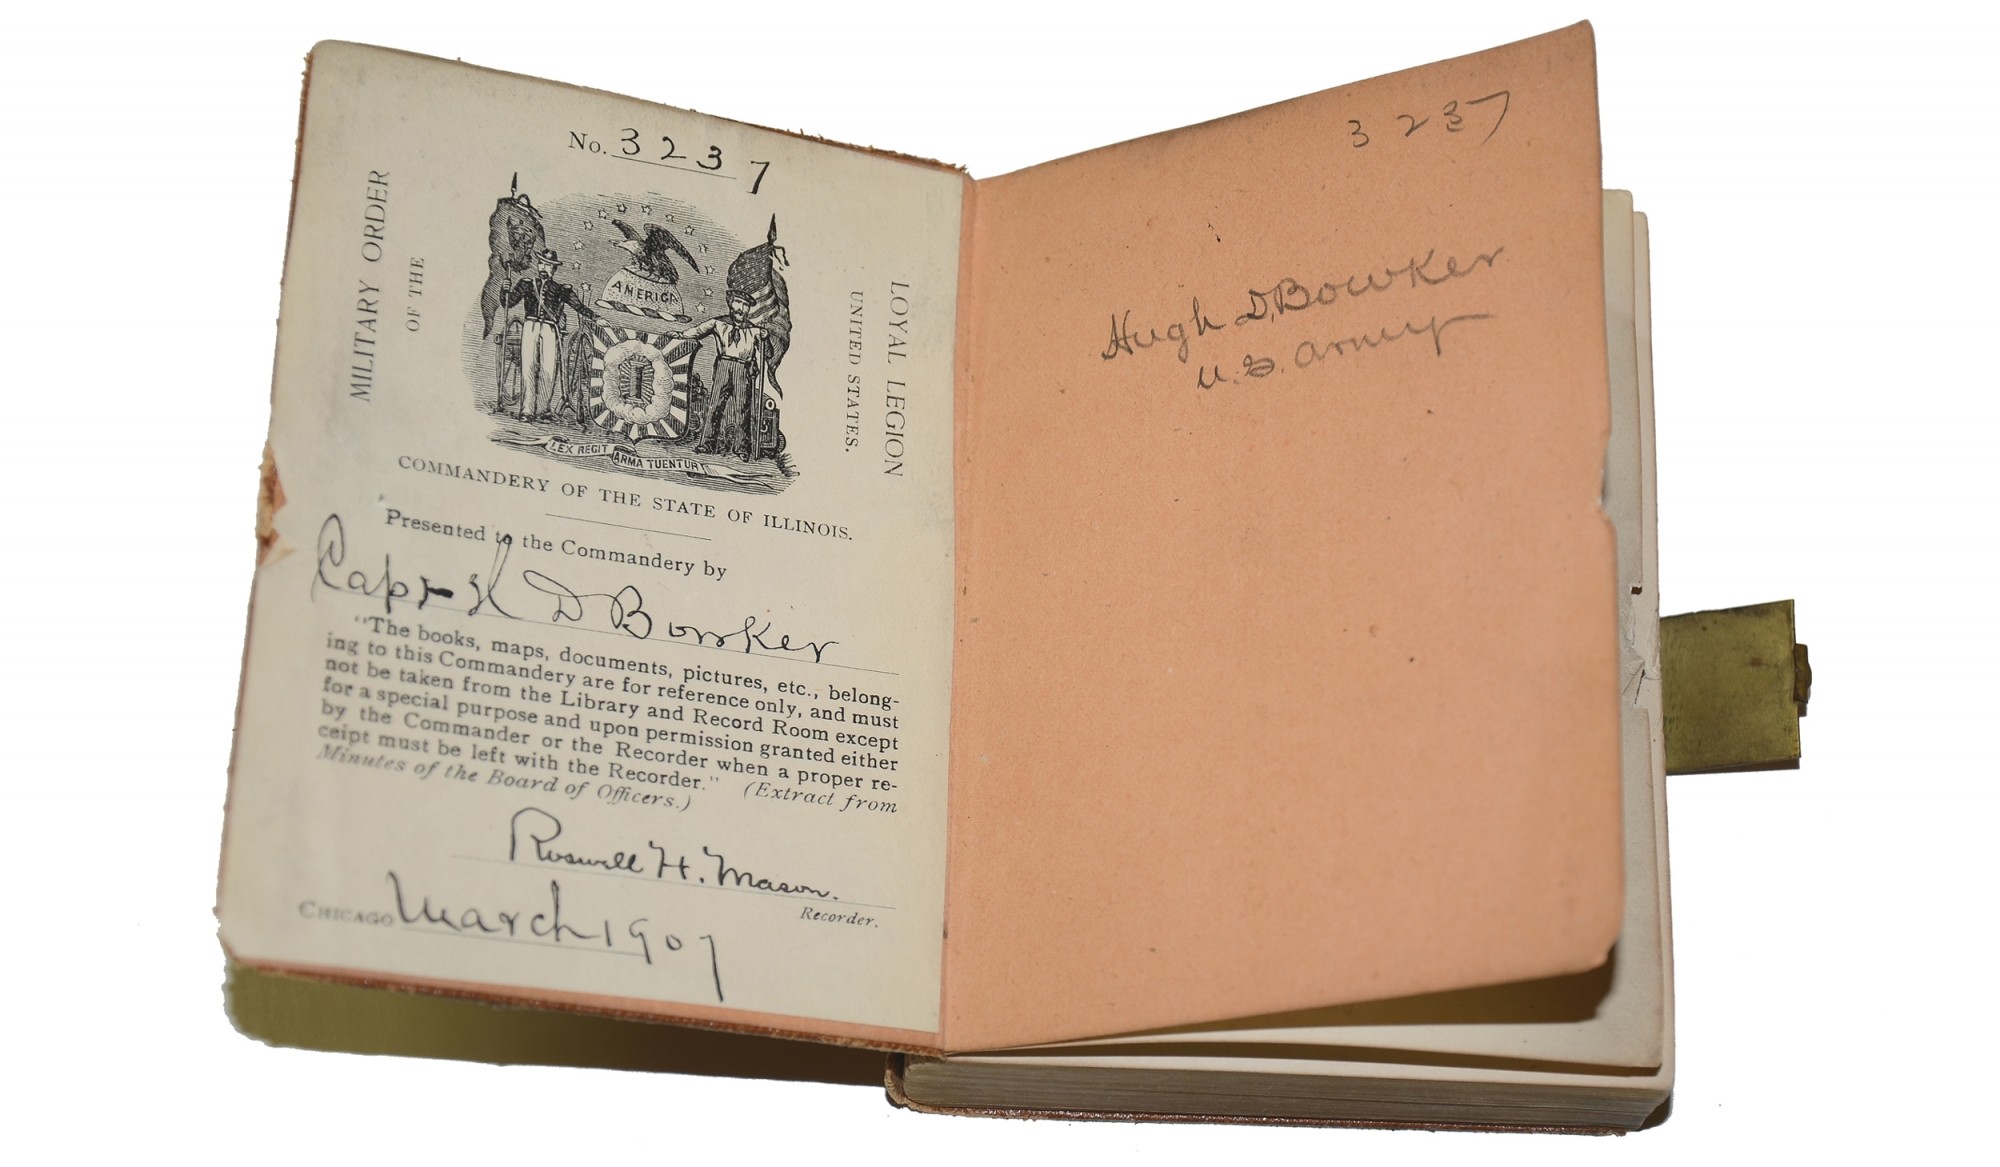 No. 3237
MILITARY ORDER
OF THE
LOYAL LEGION
UNITED STATES.
AMERICA
LEX REGIT
ARMA TUENTUR
COMMANDERY OF THE STATE OF ILLINOIS.
Presented to the Commandery by
Capt H D Bowker
"The books, maps, documents, pictures, etc., belong-
ing to this Commandery are for reference only, and must
not be taken from the Library and Record Room except
for a special purpose and upon permission granted either
by the Commander or the Recorder when a proper re-
ceipt must be left with the Recorder." (Extract from
Minutes of the Board of Officers.)
Roswell H. Mason.
Recorder.
CHICAGO March 1907
3237
Hugh D. Bowker
U.S. Army